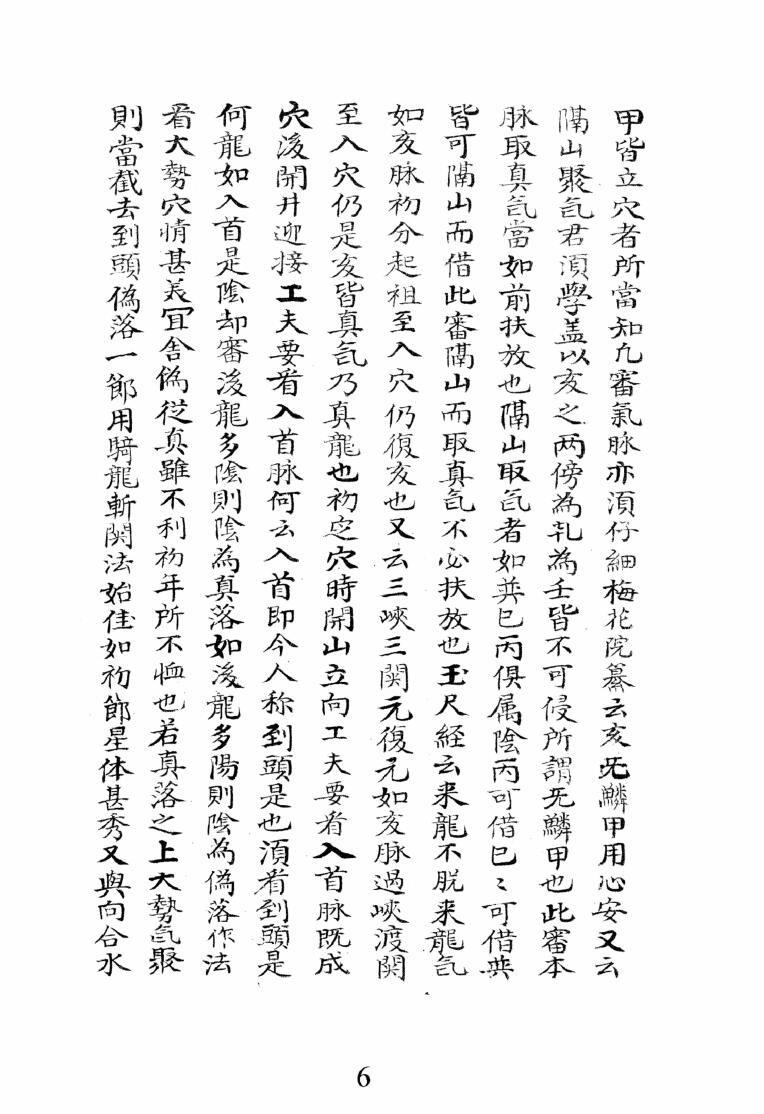 甲皆立穴者所當知凢審氣脉亦湏仔細梅花院纂云亥旡鱗甲用心安又云
隔山聚気君湏學盖以亥之两傍為乹為壬皆不可侵所謂旡鱗甲也此審本
脉取真気當如前扶放也隔山取気者如巽巳丙俱属陰丙可借巳〻可借巽
皆可隔山而借此審隔山而取真気不必扶放也玉尺経云来龍不脱来龍気
如亥脉初分起祖至入穴仍復亥也又云三峽三関元復元如亥脉過峽渡関
至入穴仍是亥皆真気乃真龍也初定穴時開山立向工夫要看入首脉既成
穴後開井迎接工夫要看入首脉何云入首即今人称到頭是也湏看到頭是
何龍如入首是陰却審後龍多陰則陰為真落如後龍多陽則陰為偽落作法
看大勢穴情甚美冝舎偽從真雖不利初年所不恤也若真落之上大勢気聚
則當截去到頭偽落一節用騎龍斬関法始佳如初節星体甚秀又與向合水
6